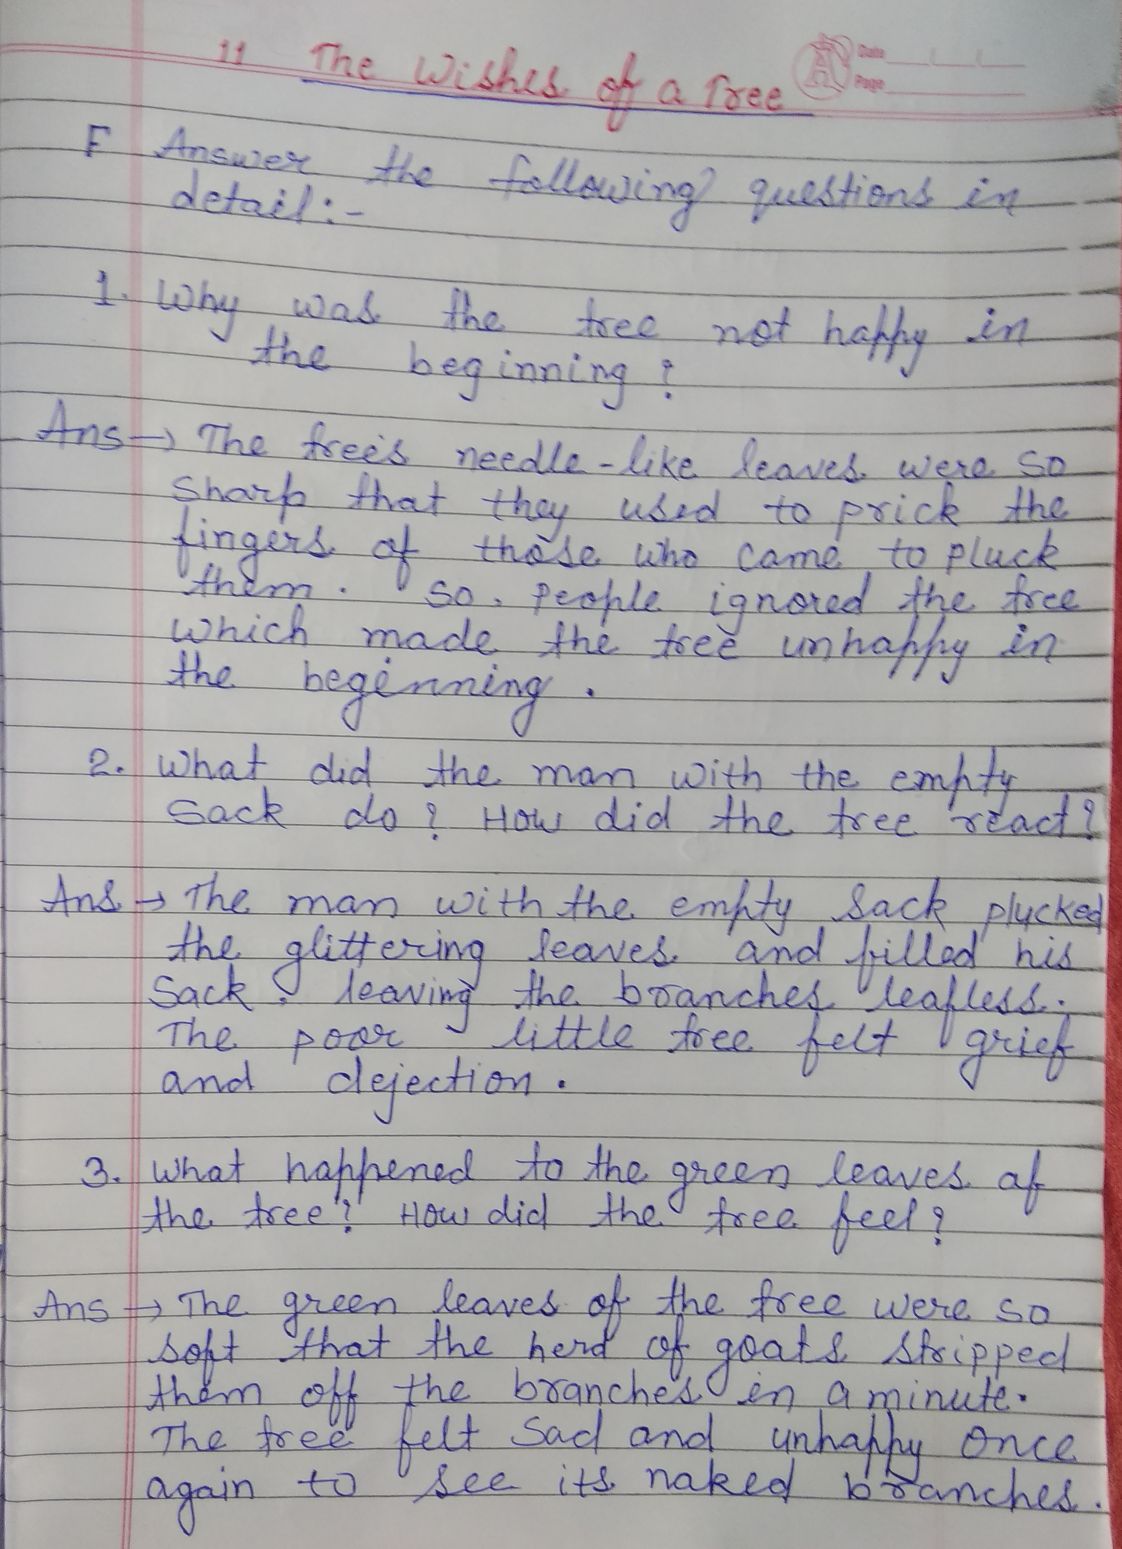 11 The Wishes of a Tree
Date
Page
F Answer the following questions in
detail:-
1. Why was the tree not happy in
the beginning?
Ans→ The tree's needle-like leaves were so
sharp that they used to prick the
fingers of those who came to pluck
them. So, people ignored the tree
which made the tree unhappy in
the beginning.
2. What did the man with the empty
sack do? How did the tree react?
Ans→ The man with the empty sack plucked
the glittering leaves and filled his
sack, leaving the branches leafless.
The poor little tree felt grief
and dejection.
3. What happened to the green leaves of
the tree? How did the tree feel?
Ans→ The green leaves of the tree were so
soft that the herd of goats stripped
them off the branches in a minute.
The tree felt sad and unhappy once
again to see its naked branches.